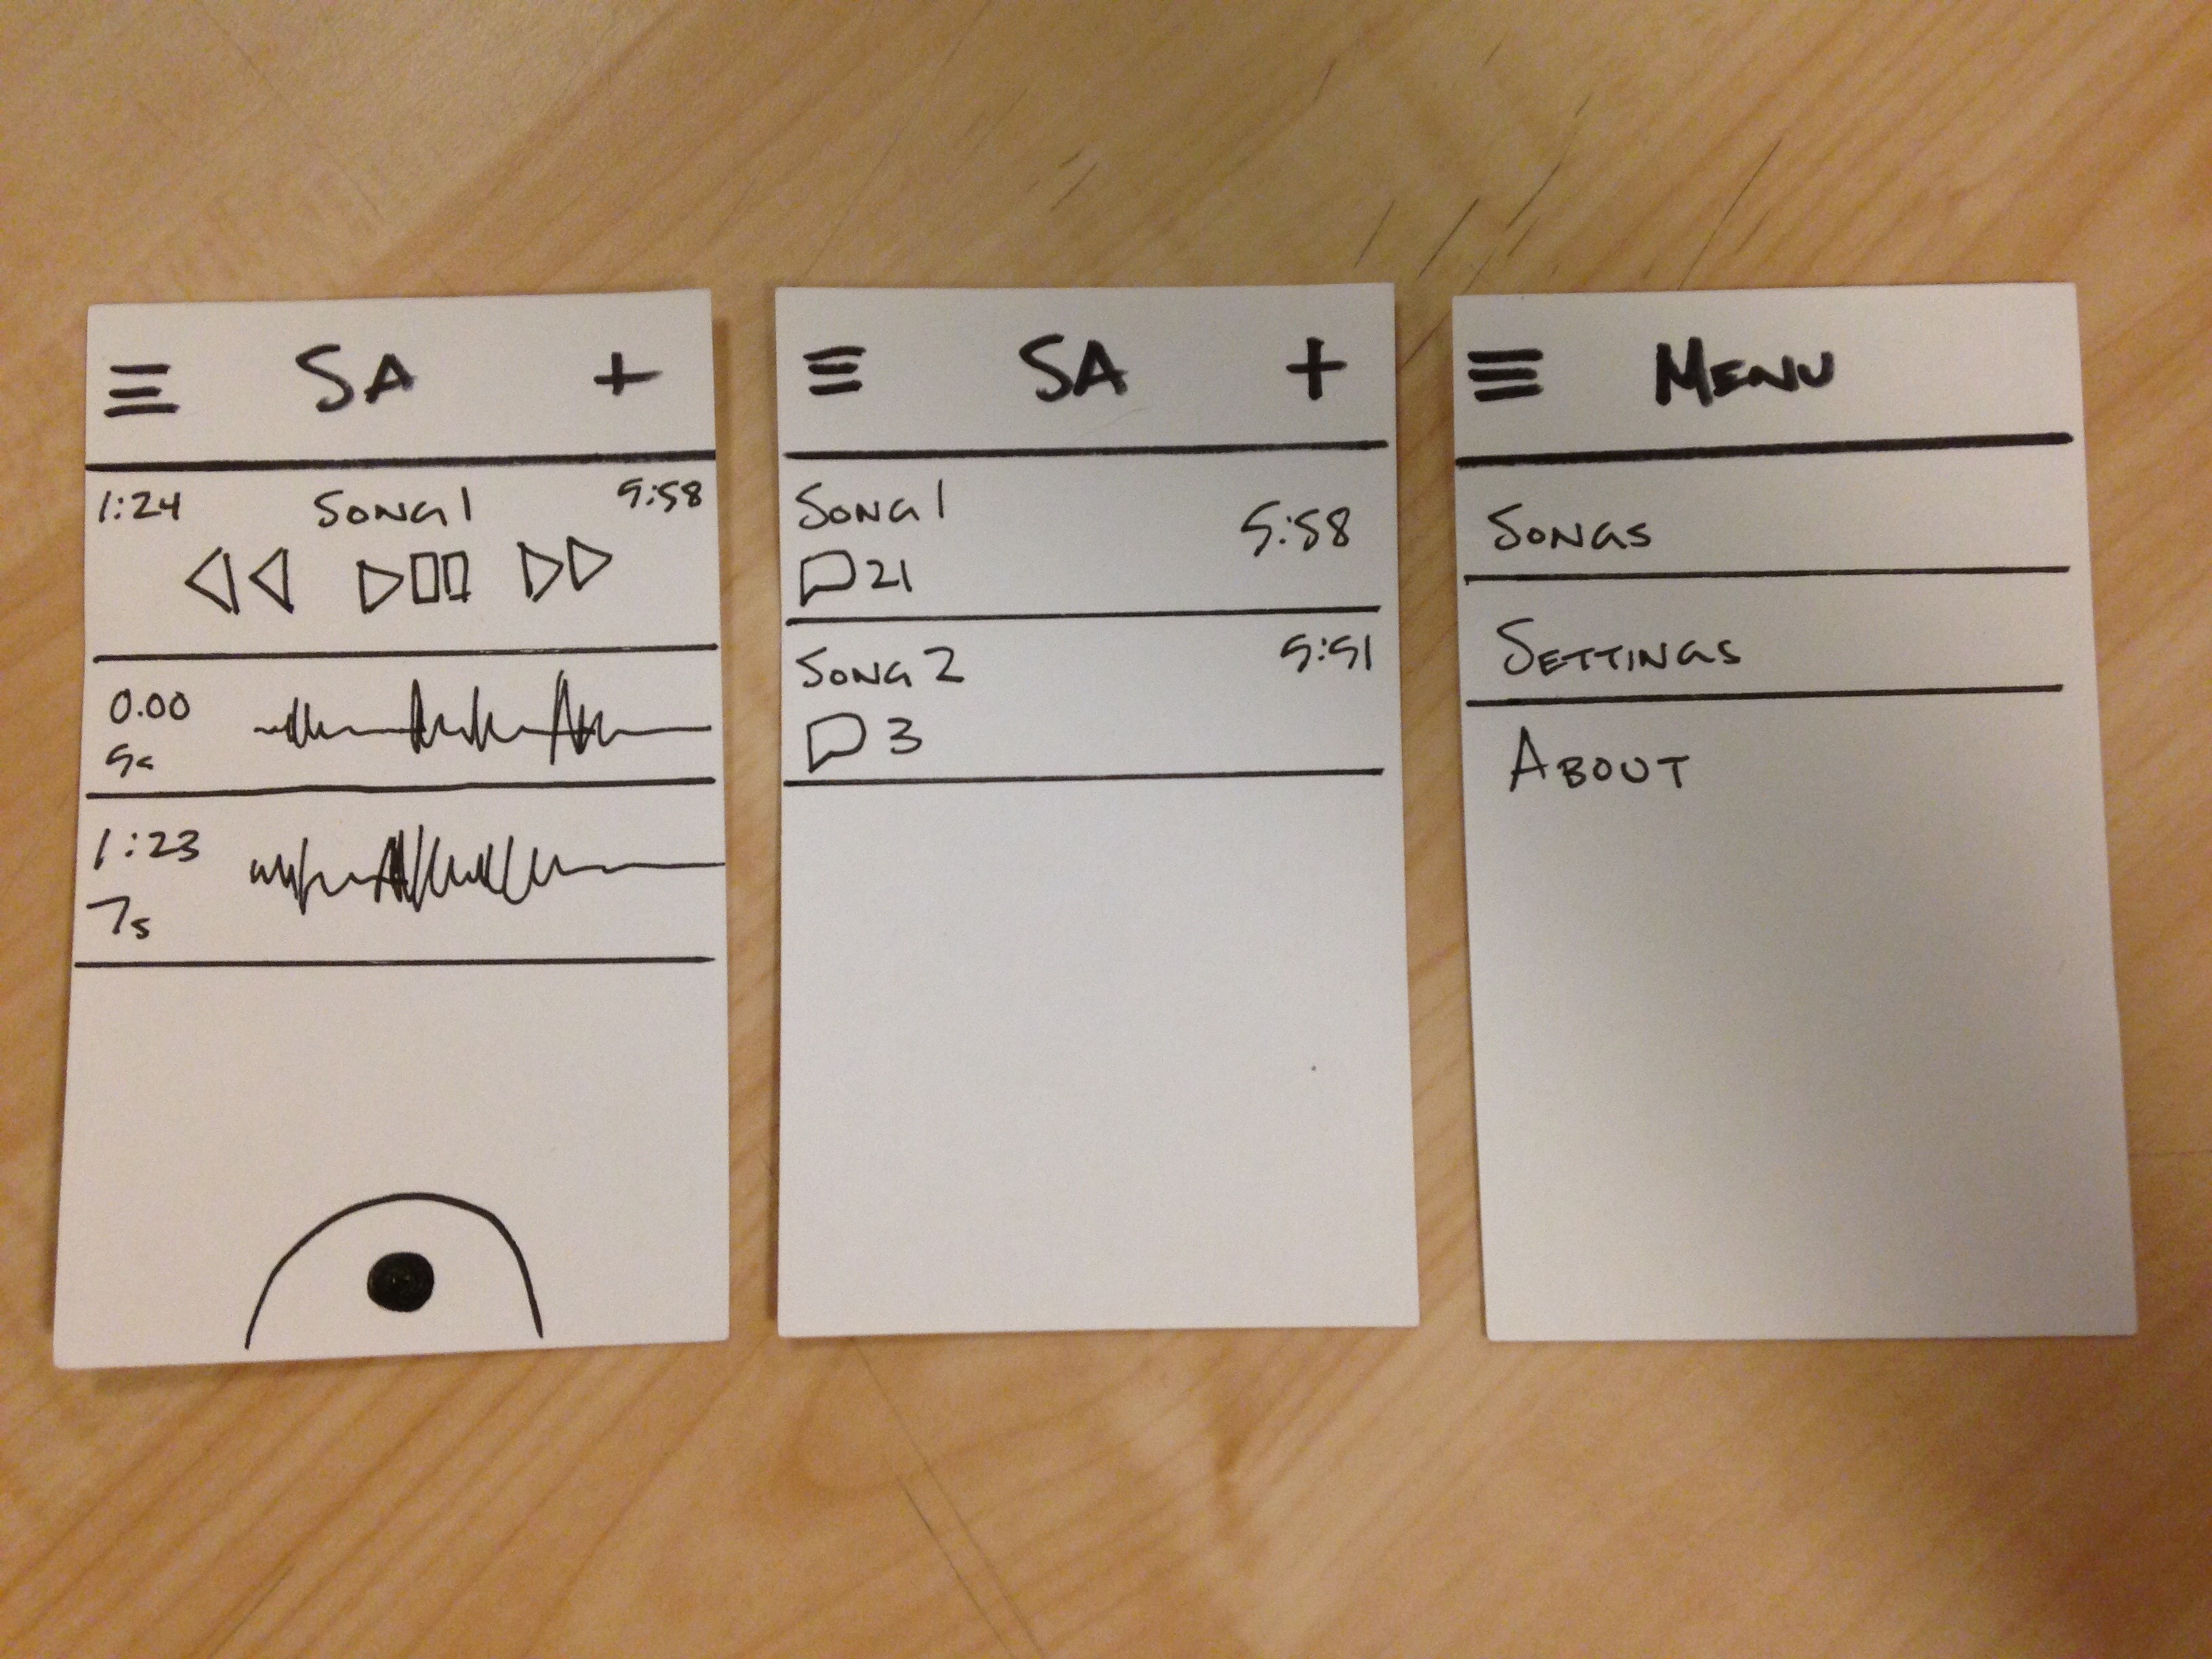 SA
1:24 Song 1 5:58
0.00
5s
1:23
7s
SA
Song 1 5:58
21
Song 2 5:51
3
Menu
Songs
Settings
About